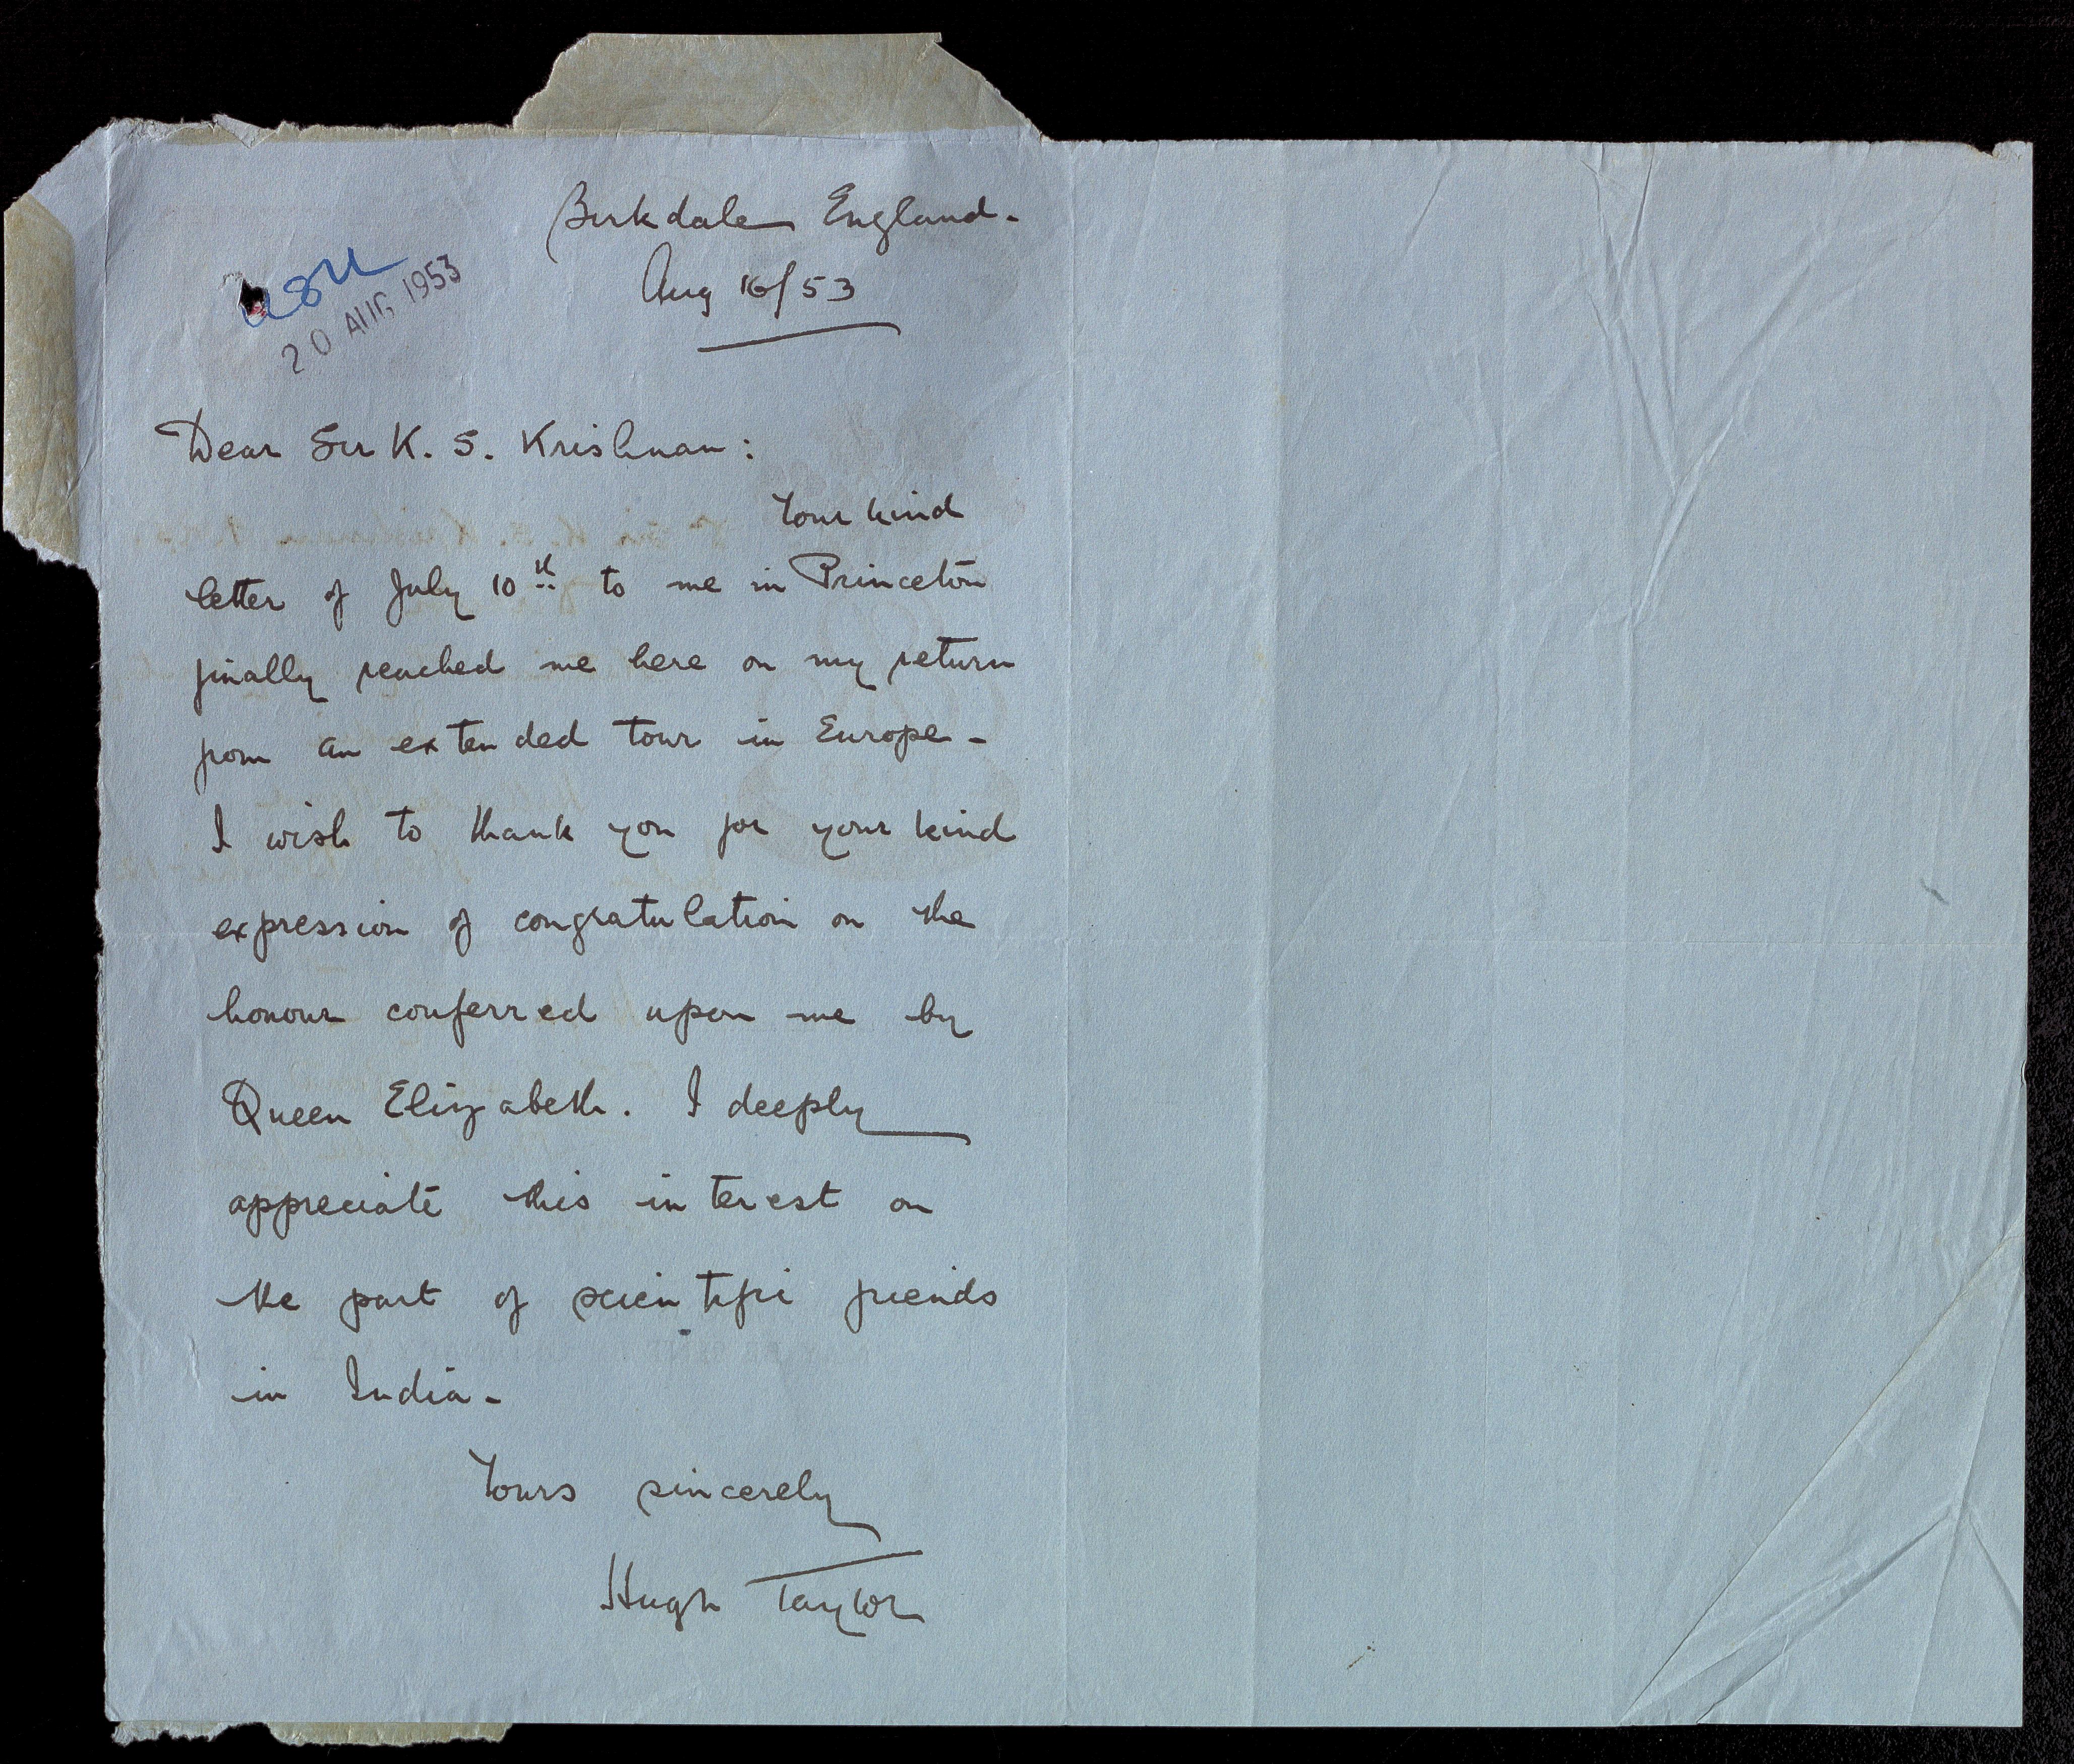 Birkdale England-
Aug 16/53
20 AUG 1953
Dear Sir K. S. Krishnan:
Your kind
letter of July 10th to me in Princeton
finally reached me here on my return
from an extended tour in Europe-
I wish to thank you for your kind
expression of congratulation on the
honour conferred upon me by
Queen Elizabeth. I deeply
appreciate this interest on
the part of scientific friends
in India-
Yours sincerely
Hugh Taylor